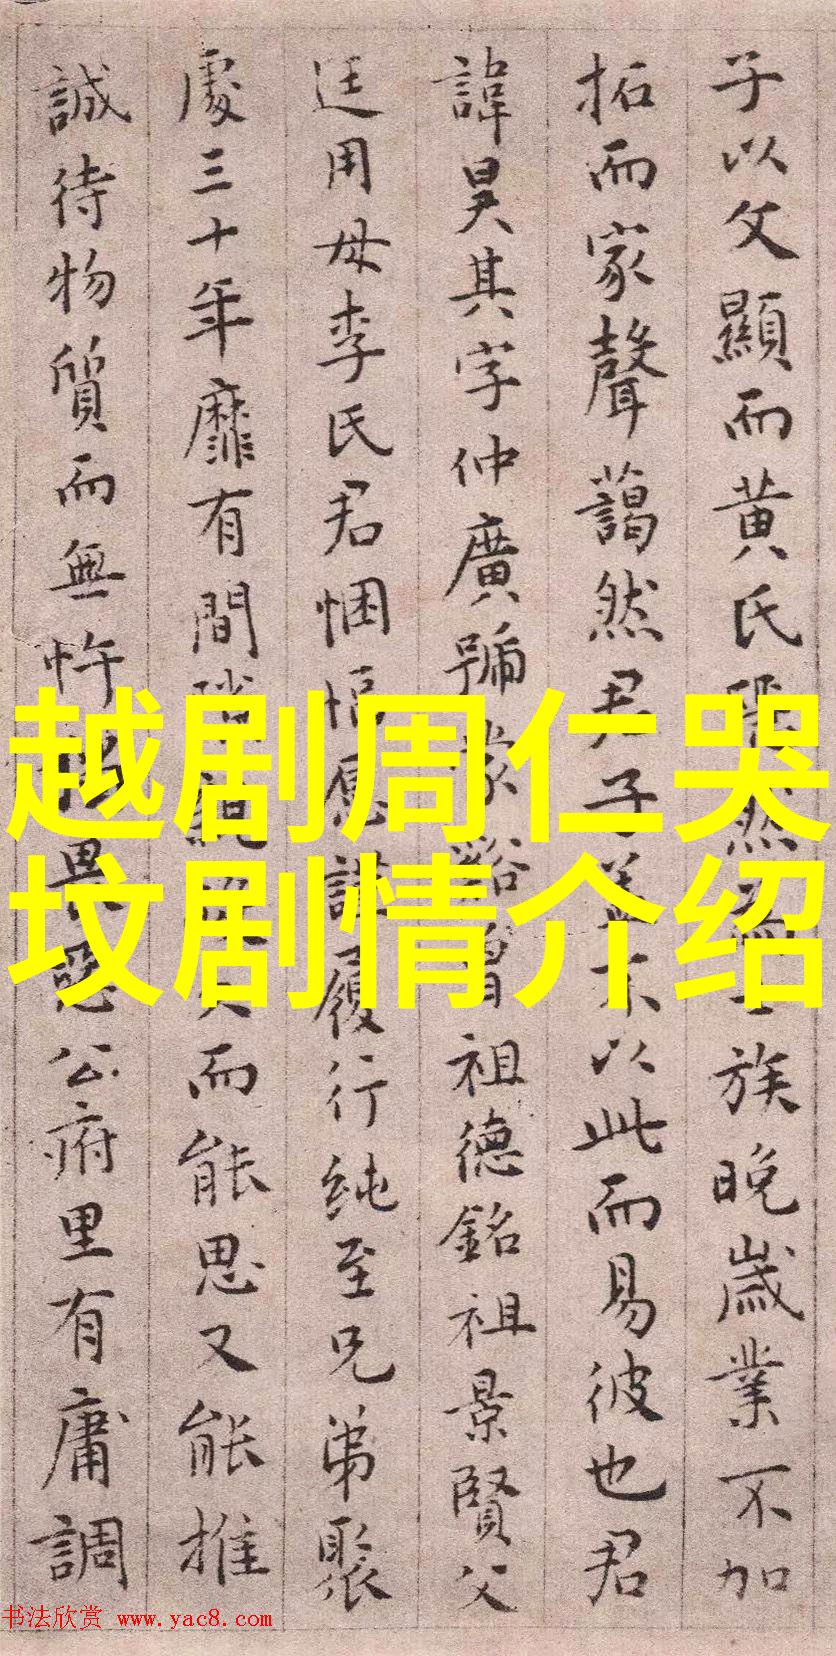 子以父顯而黃氏
族晚歲業不加
拓而家聲藹然君子蓋不以此而易彼也君
諱昊其字仲廣號
曾祖德銘祖景賢父
廷用母李氏君悃愊愿謹履行純至兄弟聚
處三十年靡有間
而能思又能推
誠待物質而無忤
畏慈公府里有庸調
越剧周仁哭
坟剧情介绍
书法欣赏 www.yac8.com